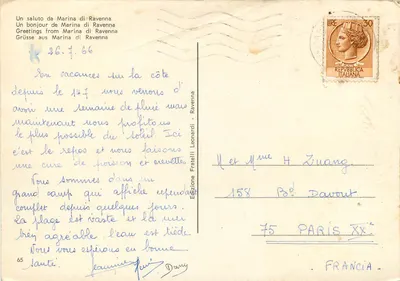 Un saluto da Marina di Ravenna
Un bonjour de Marina di Ravenna
Greetings from Marina di Ravenna
Grüsse aus Marina di Ravenna
26.7.66
En vacances sur la côte
depuis le 17 nous venons d'
avoir une semaine de pluie mais
maintenant nous profitons
le plus possible du soleil Ici
c'est le repos et nous faisons
une cure de poisson et crevettes
Nous sommes dans un
grand camp qui affiche cependant
complet depuis quelques jours.
la plage est vaste et la mer
bien agréable l'eau est tiède.
Nous vous espérons en bonne
santé.
Jeannine
65
Edizione Fratelli Leonardi - Ravenna
30
REPVBBLICA
ITALIANA
M et Mme H. Zuang.
158 Bd Davout
75 PARIS XX
FRANCIA.